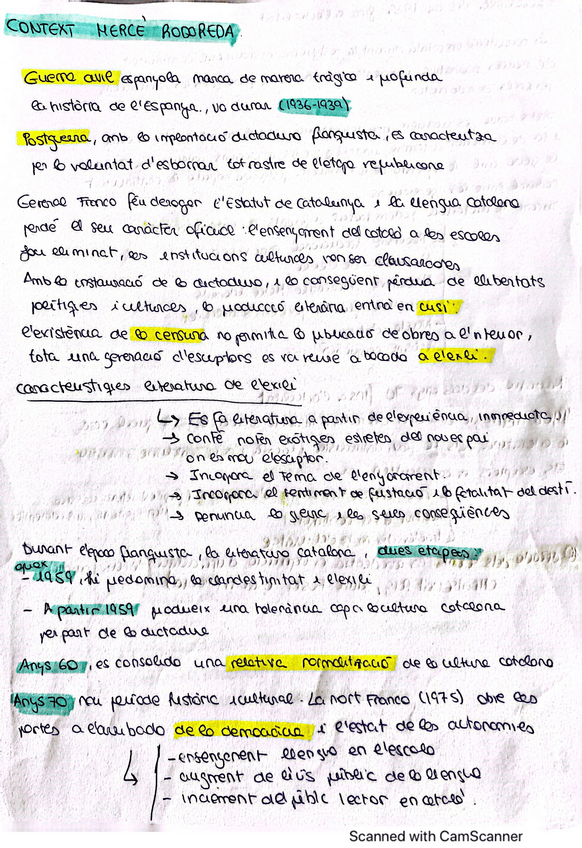 CONTEXT MERCÈ RODOREDA
Guerra civil espanyola marca de manera tràgica i profunda
la història de l'Espanya, va durar (1936-1939)
Postguerra, amb la implantació dictadura franquista, es caracteritza
per la voluntat d'esborrar tot rastre de l'etapa republicana
General Franco féu derogar l'Estatut de Catalunya i la llengua catalana
perdé el seu caràcter oficial: l'ensenyament del català a les escoles
fou eliminat, les institucions culturals van ser clausurades
Amb la instauració de la dictadura, i la consegüent pèrdua de llibertats
polítiques i culturals, la producció literària entrà en crisi:
l'existència de la censura no permitia la publicació de obres a l'interior,
tota una generació d'escriptors es va veure abocada a l'exili.
Característiques literatura de l'exili
↳ Es fa literatura a partir de l'experiència, immediata
→ conté notes exòtiques estretes del nou espai
on es mou l'escriptor.
→ Incorpora el tema de l'enyorament.
→ Incorpora el sentiment de frustació i la fatalitat del destí.
→ Denuncia la guerra i les seves conseqüències
Durant l'època franquista, la literatura catalana, dues etapes:
aprox
- 1959, hi predomina, la clandestinitat i l'exili
- A partir 1959 produeix una tolerància cap a la cultura catalana
per part de la dictadura
Anys 60, es consolida una relativa normalització de la cultura catalana
Anys 70 nou període històric i cultural. La mort Franco (1975) obre les
portes a l'arribada de la democràcia i l'estat de les autonomies
↳ - ensenyament llengua en l'escola
- augment de l'ús públic de la llengua
- increment del públic lector en català.
Scanned with CamScanner